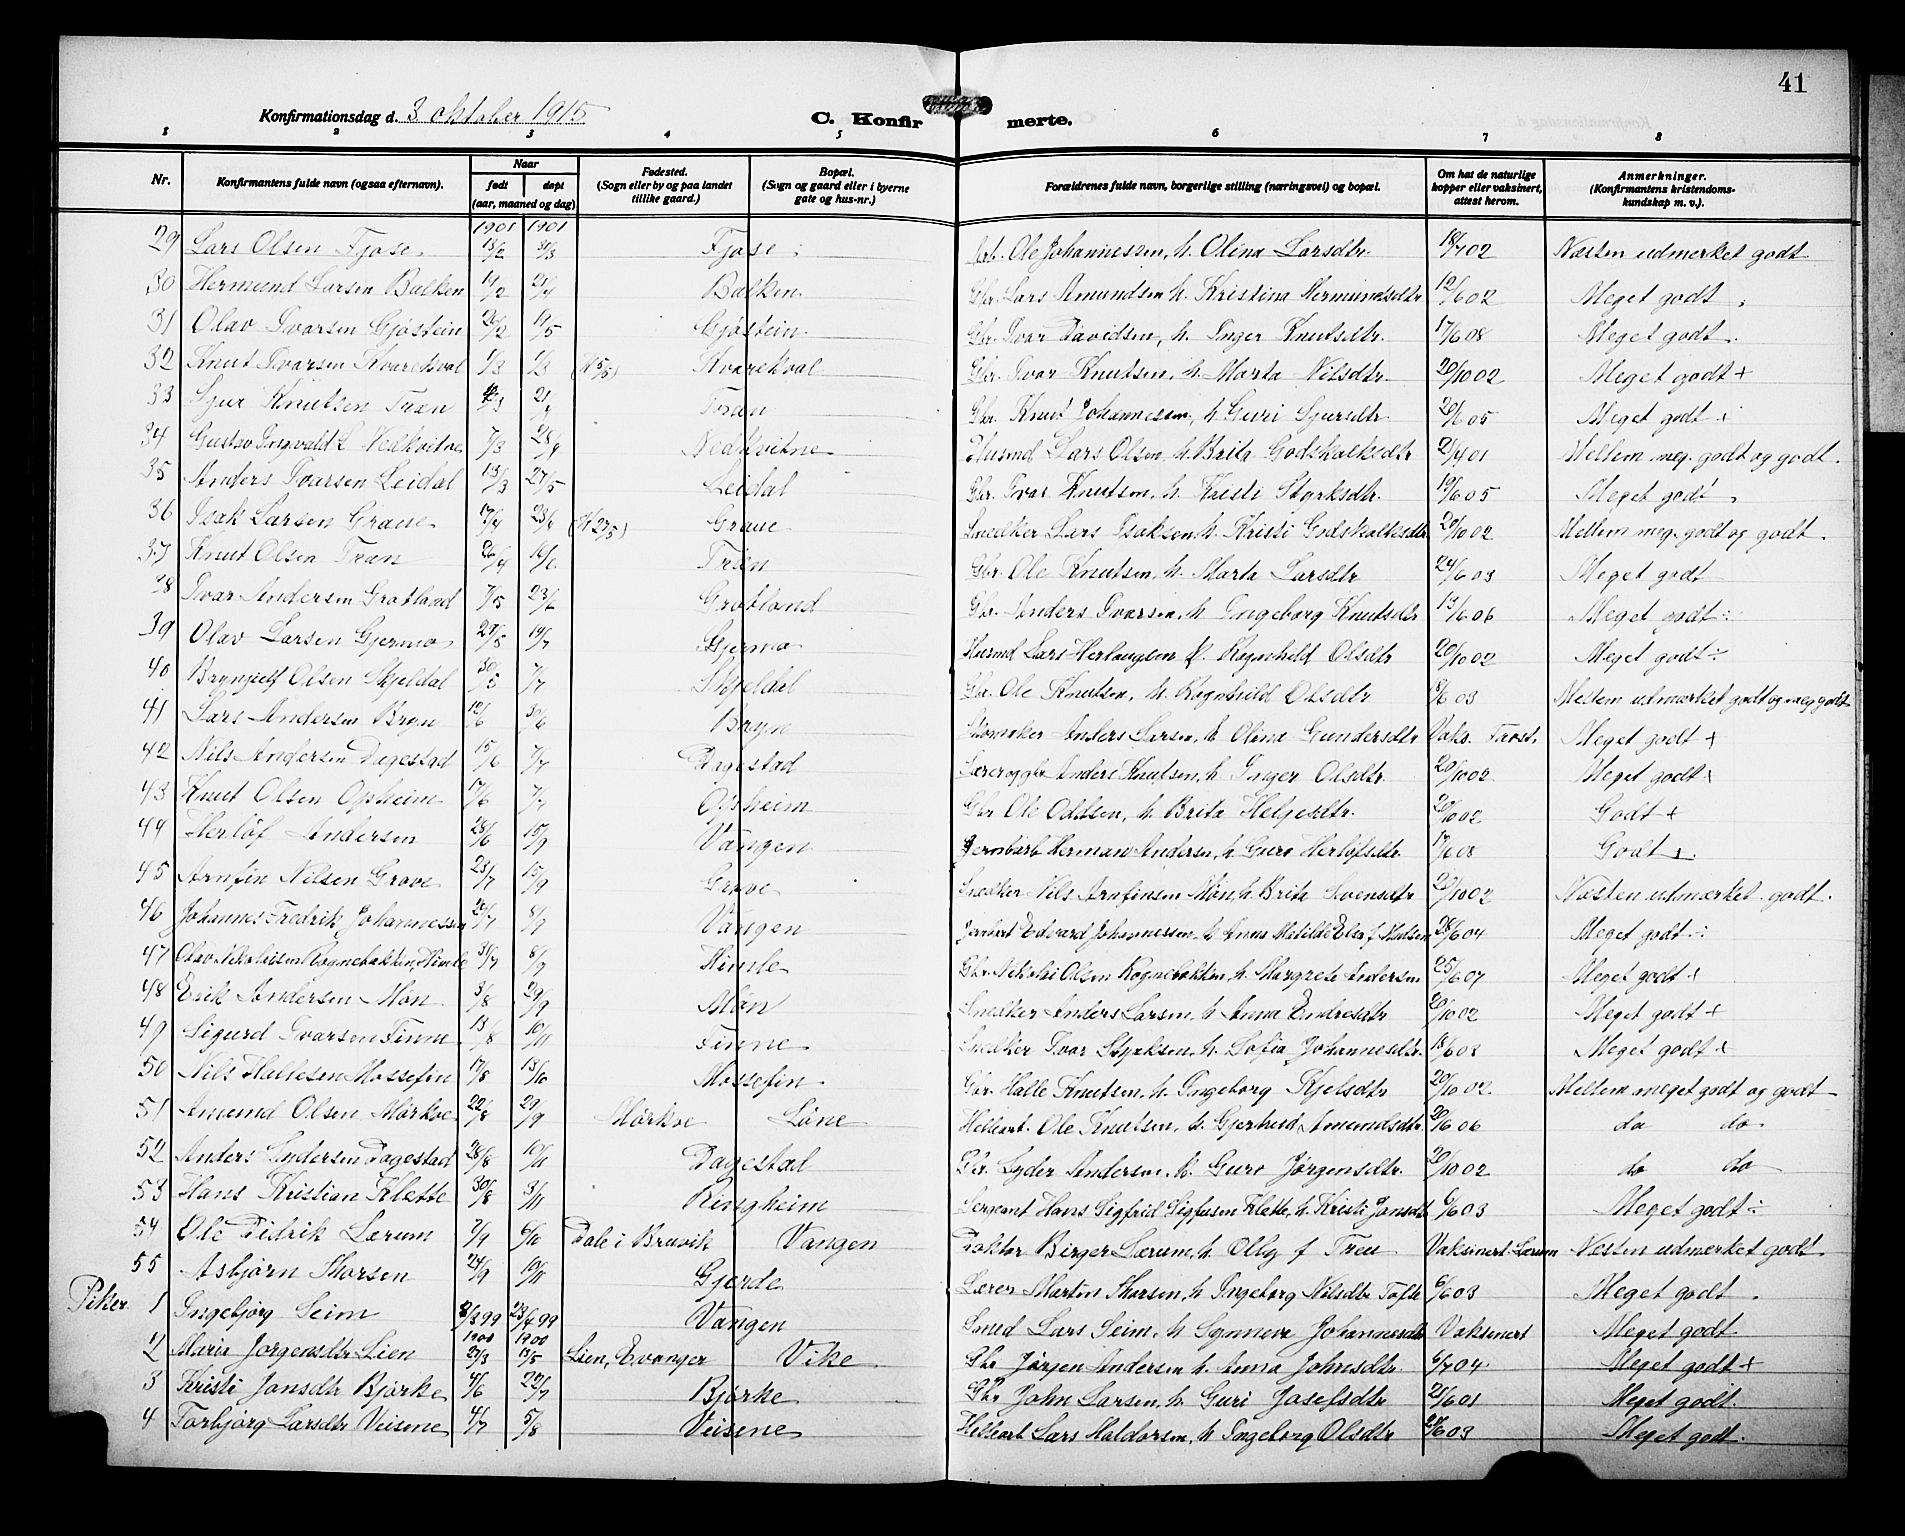 41
Konfirmationsdag d. 3 oktober 1915 C. Konfirmerte.
1 2 3 4 5 6 7 8
Nr. Konfirmantens fulde navn (ogsaa efternavn). Naar født døpt (aar, maaned og dag) Fødested. (Sogn eller by og paa landet tillike gaard.) Bopæl. (Sogn og gaard eller i byerne gate og hus-nr.) Forældrenes fulde navn, borgerlige stilling (næringsvei) og bopæl. Om hat de naturlige kopper eller vaksinert, attest herom. Anmerkninger. (Konfirmantens kristendomskundskap m. v.).
1901 1901
29 Lars Olsen Fjose 31/3 Fjose Arb. Ole Johannessen, h. Olina Larsdtr. 18/7 02 Næsten udmerket godt
30 Hermund Larsen Bulken 21/4 Bulken Gbr. Lars Amundsen h. Kristina Hermundsdtr 12/6 02 Meget godt
31 Olav Ivarsen Gjøstein 26/2 19/5 Gjøstein Gbr. Ivar Davidsen, h. Inger Knutsdtr. 17/6 08 Meget godt.
32 Knut Ivarsen Kvarekval 1/3 1/3 (K 5/5) Kvarekval Gbr. Ivar Knutsen, h. Marta Nilsdtr. 20/10 02 Meget godt +
33 Sjur Knutsen Træn 21/4 Træn Gbr. Knut Johannessen, h Guri Sjursdtr. 20/6 05 Meget godt +
34 Gustav Ingvald L. Nedkvitne 7/3 28/4 Nedkvitne Husmd Lars Olsen, h. Brita Godskalksdtr 21/4 01 Mellem meg. godt og godt.
35 Anders Ivarsen Leidal 13/3 27/5 Leidal Gbr. Ivar Knutsen, h. Kristi Styrksdtr. 19/6 05 Meget godt
36 Isak Larsen Graue 17/4 23/4 (K 27/5) Graue Snedker Lars Isaksen, h. Kristi Godskalksdtr 20/10 02 Mellem meg. godt og godt.
37 Knut Olsen Træn 26/4 16/6 Træn Gbr. Ole Knutsen, h. Marta Larsdtr 24/6 03 Meget godt
38 Ivar Andersen Grotland 7/5 23/6 Grotland Gbr. Anders Ivarsen, h Ingeborg Knutsdtr 13/6 06 Meget godt ÷
39 Olav Larsen Gjerme 29/5 14/7 Gjerme Husmd Lars Herlaugsen h. Ragnhild Olsdtr 20/10 02 Meget godt ÷
40 Brynjulf Olsen Skjeldal 30/5 7/7 Skjeldal Gbr. Ole Knutsen, h. Ragnhild Olsdtr 8/6 03 Mellem udmærket godt og meg godt
41 Lars Andersen Bryn 12/6 30/6 Bryn Skomaker Anders Larsen, h Olina Gundersdtr Vaks. Meget godt +
42 Nils Andersen Dagestad 15/6 7/7 Dagestad Lærer og gbr Anders Knutsen, h. Inger Olsdtr. 20/10 02 Meget godt +
43 Knut Olsen Opheim 17/6 7/7 Opheim Gbr Ole Oddsen, h. Brita Helgesdtr. 20/10 02 Godt +
44 Herlöf Andersen 28/6 15/9 Vangen Jernbarb Herman Andersen, h. Guro Herlöfsdtr. 17/6 08 Godt +
45 Arnfin Nilsen Grove 23/7 15/9 Grove Snedker Nils Arnfinsen Møn, h. Brita Svensdtr 20/10 02 Næsten udmærket godt.
46 Johannes Fredrik Johannessen 8/9 Vangen Jernbarb Edvard Johannessen, h Anna Matilde Elea f. Knutsen 28/6 04 Meget godt ÷
47 Olav Nikolaisen Rognebakken, Himle 31/7 8/9 Himle Gbr. Nikolai Olsen Rognebakken, h. Margrete Andersen 25/6 07 Meget godt +
48 Erik Andersen Møn 3/8 29/9 Møn Snedker Anders Larsen, h Anna Endresdtr 20/10 02 Meget godt +
49 Sigurd Ivarsen Finne 13/8 10/11 Finne Snedker Ivar Styrksen, h. Sofia Johannesdtr. 18/6 03 Meget godt +
50 Nils Hallesen Mossefin 17/8 13/10 Mossefin Gbr. Halle Knutsen, h. Ingeborg Kjelsdtr 20/10 02 Mellem meget godt og godt
51 Amund Olsen Mörkve 22/8 29/9 Mörkve Löne Helleart. Ole Knutsen, h. Gjertrud Amundsdtr. 20/6 06 do do
52 Anders Lydersen Dagestad 28/8 10/11 Dagestad Gbr. Lyder Andersen, h. Guro Jørgensdtr. 20/10 02 do do
53 Hans Kristian Klette 30/8 3/11 Ringheim Sergeant Hans Sigfrid Sigfusen Klette, h. Kristi Jonsdtr 6/6 03 Meget godt ÷
54 Ole Didrik Lærum 7/9 6/10 Dale i Bruvik Vangen Doktor Birger Lærum, h. Olly f. Treu Vaksinert Lærum Næsten udmærket godt
55 Asbjørn Skorsen 24/9 10/11 Gjerde Lærer Martin Skorsen, h Ingeborg Nilsdtr Tofte 6/6 03 Meget godt.
Piker 1 Ingebjörg Seim 8/3 99 23/4 99 Vangen Smed Lars Seim, h Synneve Johannesdtr Vaksinert Meget godt
1900 1900
2 Maria Jorgensdtr Lien 27/3 13/5 Lien, Evanger Vike Gbr Jørgen Andersen h. Anna Johnsdtr. 6/7 04 Meget godt +
3 Kristi Jonsdtr Bjørke 4/6 22/7 Bjørke Gbr. John Larsen, h Guri Josefsdtr 25/6 01 Meget godt.
4 Torbjörg Larsdtr Veisene 4/7 5/8 Veisene Helleart Lars Haldorsen, h Ingeborg Olsdtr Meget godt.